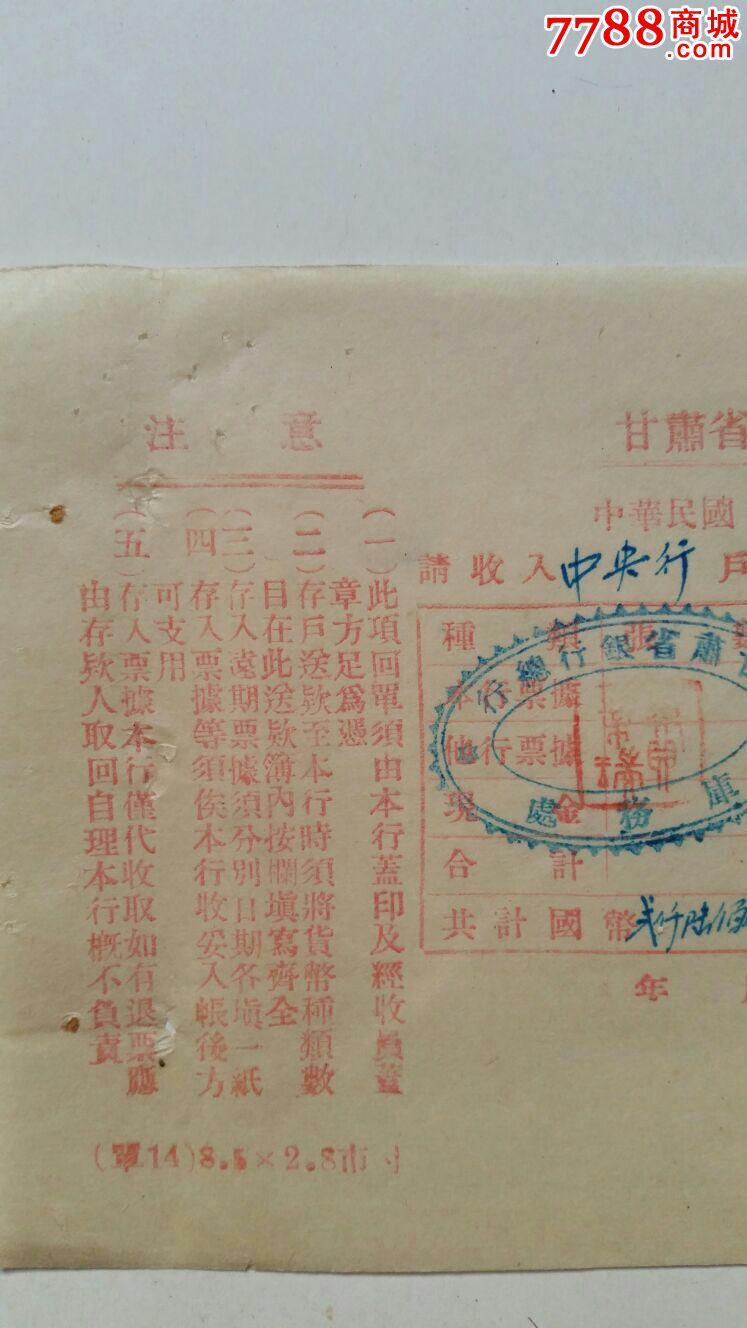 7788商城
.com
甘肅省
中華民國
請收入中央行戶
種類 張
本行票據
他行票據
現金
合計
共計國幣弍仟陆佰
年
肅省銀行總行
庫務處
注意
(一)此項回單須由本行蓋印及經收員蓋
章方足爲憑
(二)存戶送欵至本行時須將貨幣種類數
目在此送欵簿內按欄填寫齊全
(三)存入遠期票據須分別日期各填一紙
(四)存入票據等須俟本行收妥入帳後方
可支用
(五)存入票據本行僅代收取如有退票應
由存欵人取回自理本行概不負責
(單14)8.5×2.8市寸